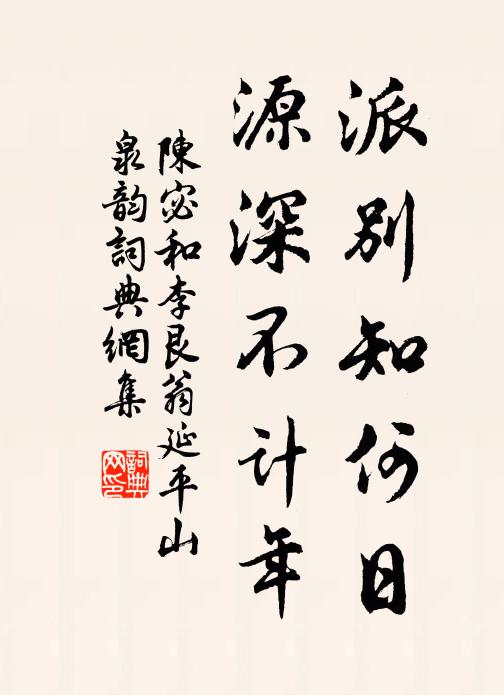 派別知何日
源深不計年
陳宓和李艮翁延平山
泉韵詞典網集
詞典網印